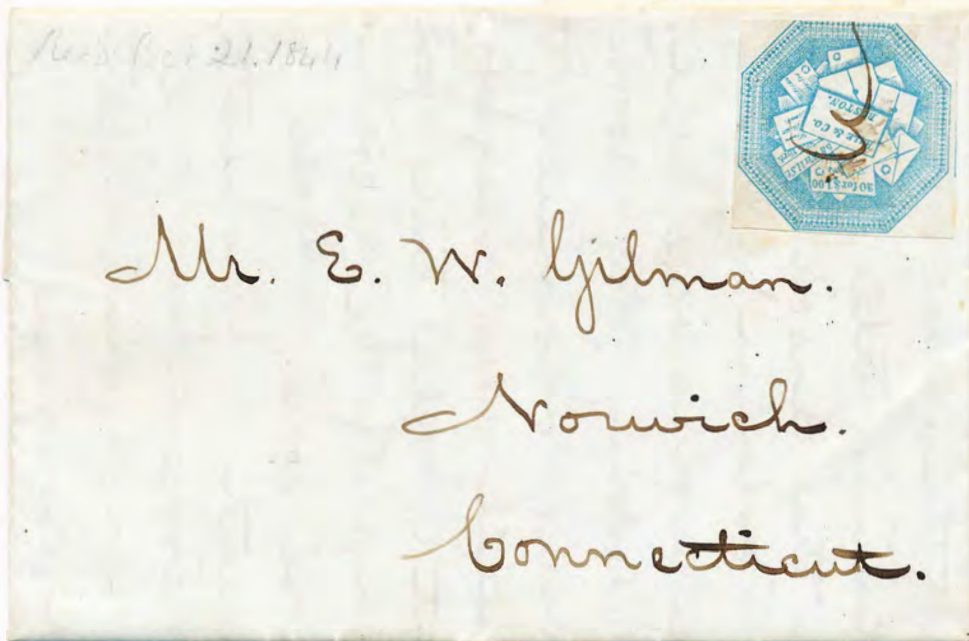 21. 1844
& Co.
BOSTON.
30 for $1.00
Mr. E. W. Gilman.
Norwich.
Connecticut.